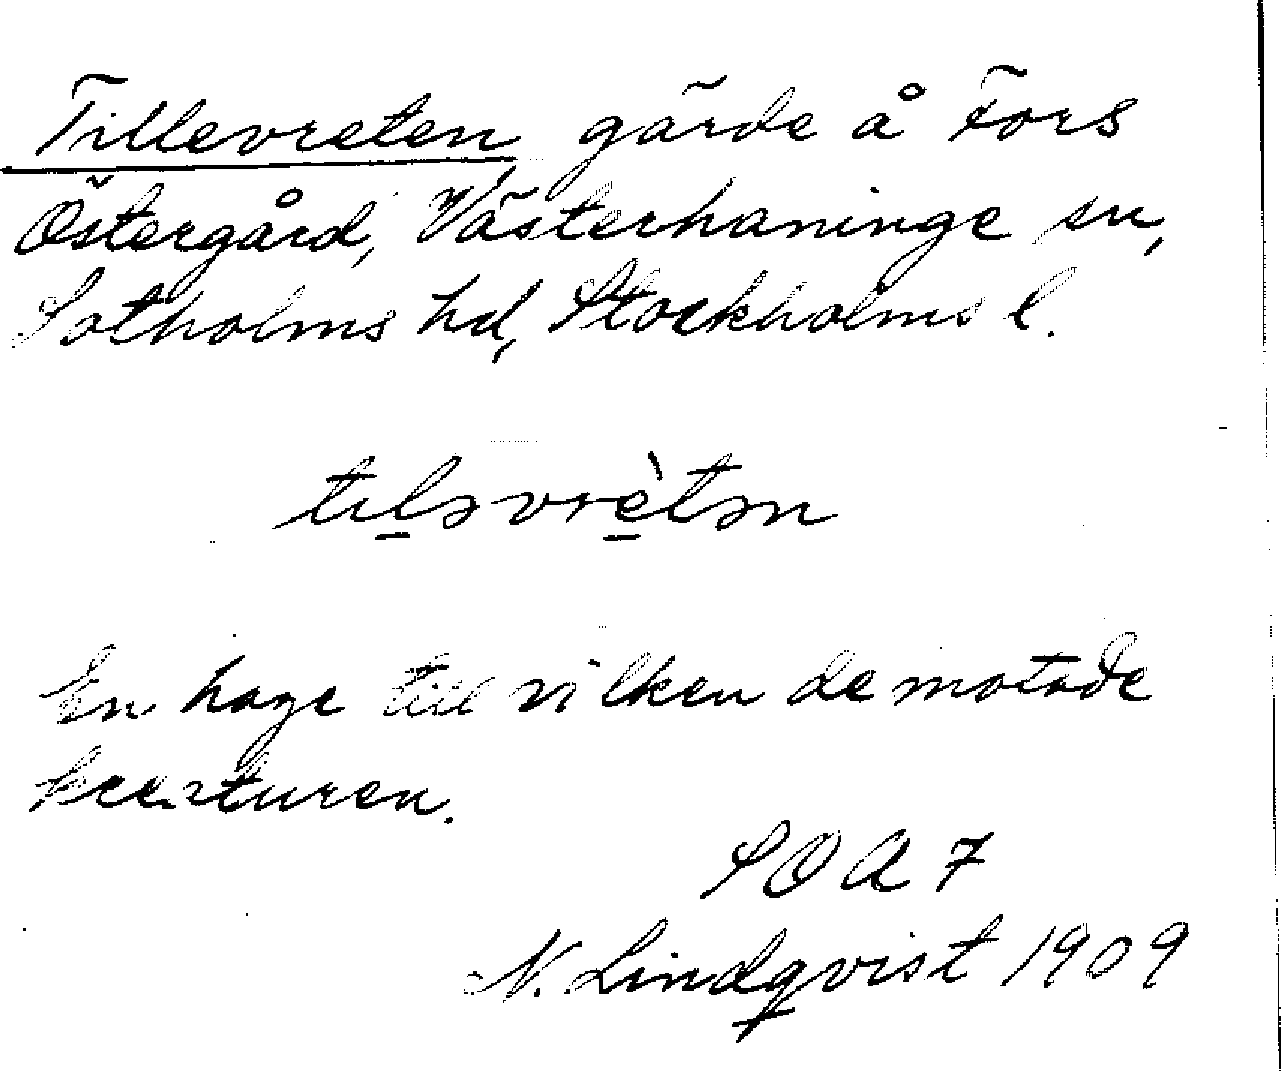 Tillevreten, gärde å Fors
Östergård, Västerhaninge sn,
Sotholms hd, Stockholms l.
tiləvrètən
En hage till vilken de motade
kreaturen.
SOA 7
N. Lindqvist 1909